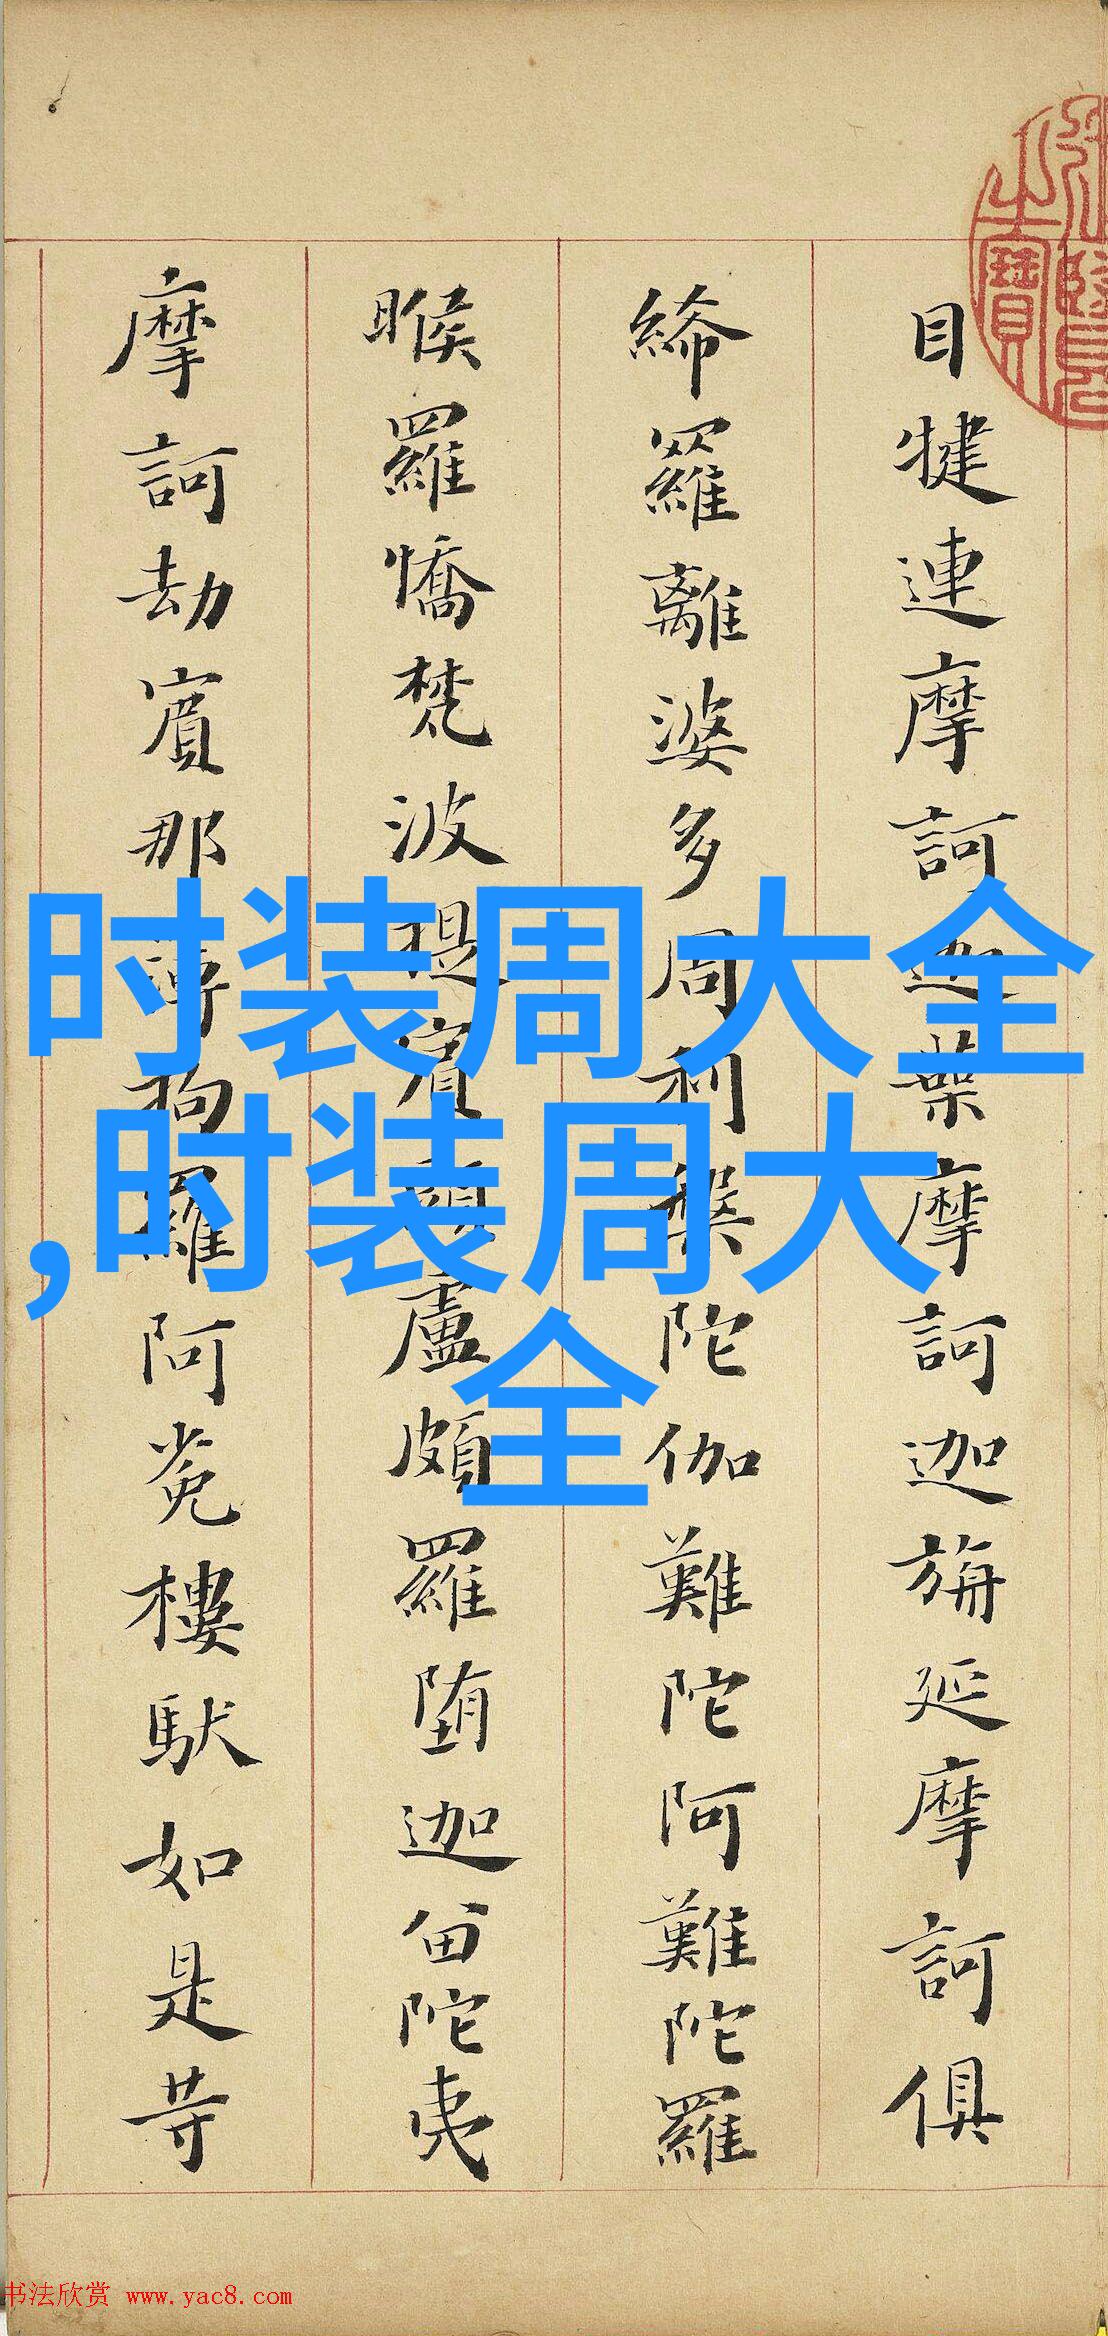 目犍連摩訶迦葉摩訶迦旃延摩訶俱
絺羅離婆多周利槃陀伽難陀阿難陀羅
睺羅憍梵波提賓頭盧頗羅堕迦留陀夷
摩訶劫賓那薄拘羅阿㝹樓馱如是等
时装周大全
,时装周大
全
书法欣赏 www.yac8.com